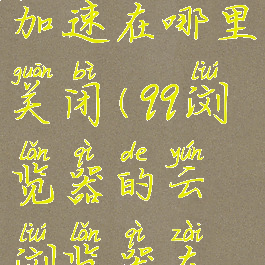 加速在哪里
guān bì liú
关闭(99浏
lǎn qì de yún
览器的云
liú lǎn qì zài
浏览器在